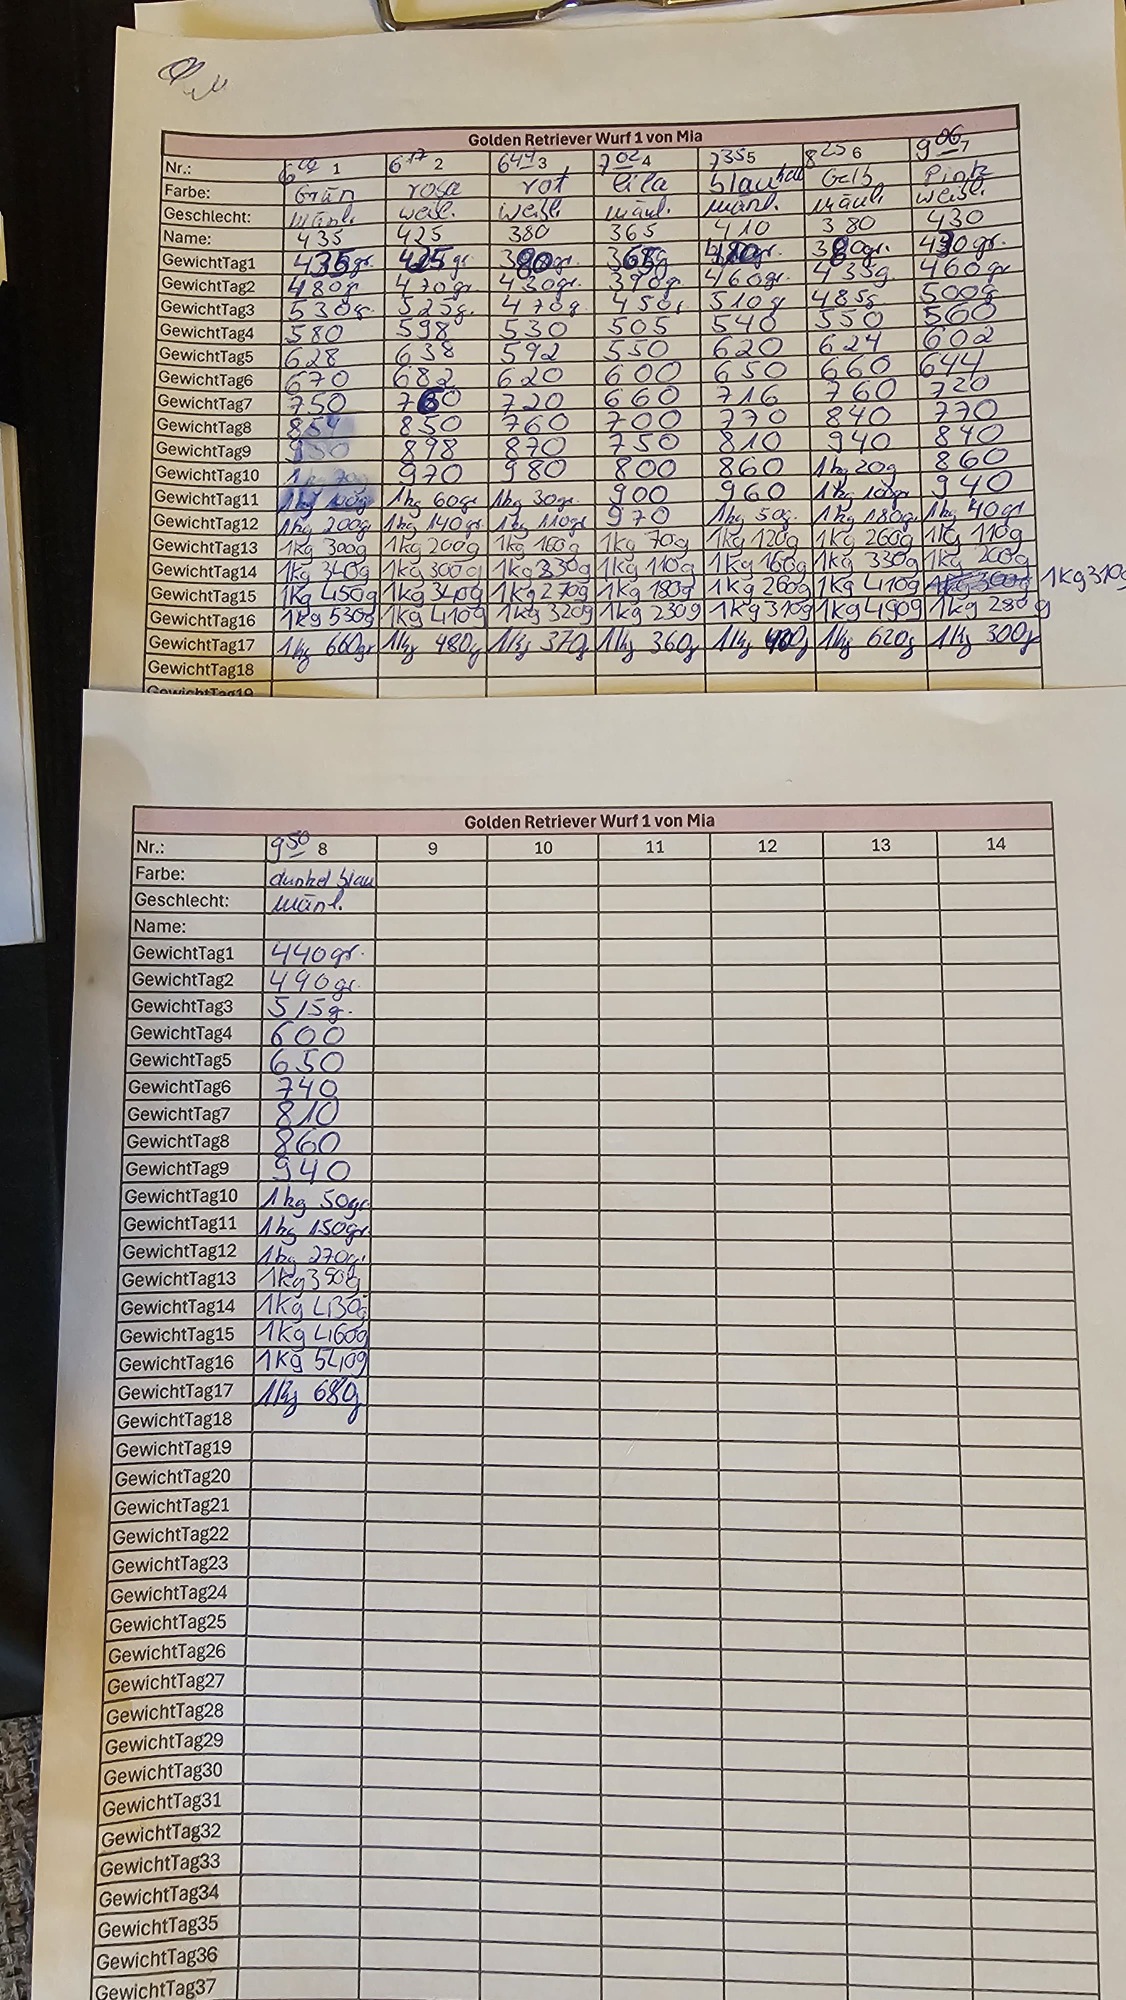 Golden Retriever Wurf 1 von Mia
Nr.: 1 6¹⁷ 2 6⁴⁴ 3 7⁰² 4 7³⁵ 5 8²⁵ 6 9⁰⁶ 7
Farbe: Grün rosa rot lila blau Gelb Pink
Geschlecht: mänl. weibl. weibl. mänl. mänl. mänl. weibl.
Name: 435 425 380 365 410 380 430
GewichtTag1 435gr. 425gr. 380gr. 365g 410gr. 380gr. 430gr.
GewichtTag2 480g 470gr. 430gr. 390g. 460gr. 435g 460gr
GewichtTag3 530g. 525g. 470g. 450g 510g 485g 500g
GewichtTag4 580 598 530 505 540 550 560
GewichtTag5 628 638 592 550 620 624 602
GewichtTag6 670 682 620 600 650 660 644
GewichtTag7 750 760 720 660 716 760 720
GewichtTag8 854 850 760 700 770 840 770
GewichtTag9 950 898 870 750 810 940 840
GewichtTag10 1kg 70g 970 980 800 860 1kg 20g 860
GewichtTag11 1kg 100g 1kg 60gr 1kg 30gr. 900 960 1kg 100gr 940
GewichtTag12 1kg 200g 1kg 140gr. 1kg 110gr 970 1kg 50g. 1kg 180g. 1kg 40gr
GewichtTag13 1kg 300g 1kg 200g 1kg 160g 1kg 70g 1kg 120g 1kg 260g 1kg 110g
GewichtTag14 1kg 340g 1kg 300g 1kg 330g 1kg 110g 1kg 160g 1kg 330g 1kg 200g
GewichtTag15 1kg 450g 1kg 340g 1kg 270g 1kg 180g 1kg 260g 1kg 410g 1kg 310g
GewichtTag16 1kg 530g 1kg 410g 1kg 320g 1kg 230g 1kg 310g 1kg 490g 1kg 280g
GewichtTag17 1kg 660gr 1kg 480g 1kg 370g 1kg 360g 1kg 400g 1kg 620g 1kg 300g
GewichtTag18
GewichtTag19
Golden Retriever Wurf 1 von Mia
Nr.: 9⁵⁰ 8 9 10 11 12 13 14
Farbe: dunkel blau
Geschlecht: mänl.
Name:
GewichtTag1 440gr.
GewichtTag2 490gr.
GewichtTag3 515g.
GewichtTag4 600
GewichtTag5 650
GewichtTag6 740
GewichtTag7 810
GewichtTag8 860
GewichtTag9 940
GewichtTag10 1kg 50gr.
GewichtTag11 1kg 150gr.
GewichtTag12 1kg 270gr.
GewichtTag13 1kg 350g
GewichtTag14 1kg 430g
GewichtTag15 1kg 460g
GewichtTag16 1kg 540g
GewichtTag17 1kg 680g
GewichtTag18
GewichtTag19
GewichtTag20
GewichtTag21
GewichtTag22
GewichtTag23
GewichtTag24
GewichtTag25
GewichtTag26
GewichtTag27
GewichtTag28
GewichtTag29
GewichtTag30
GewichtTag31
GewichtTag32
GewichtTag33
GewichtTag34
GewichtTag35
GewichtTag36
GewichtTag37